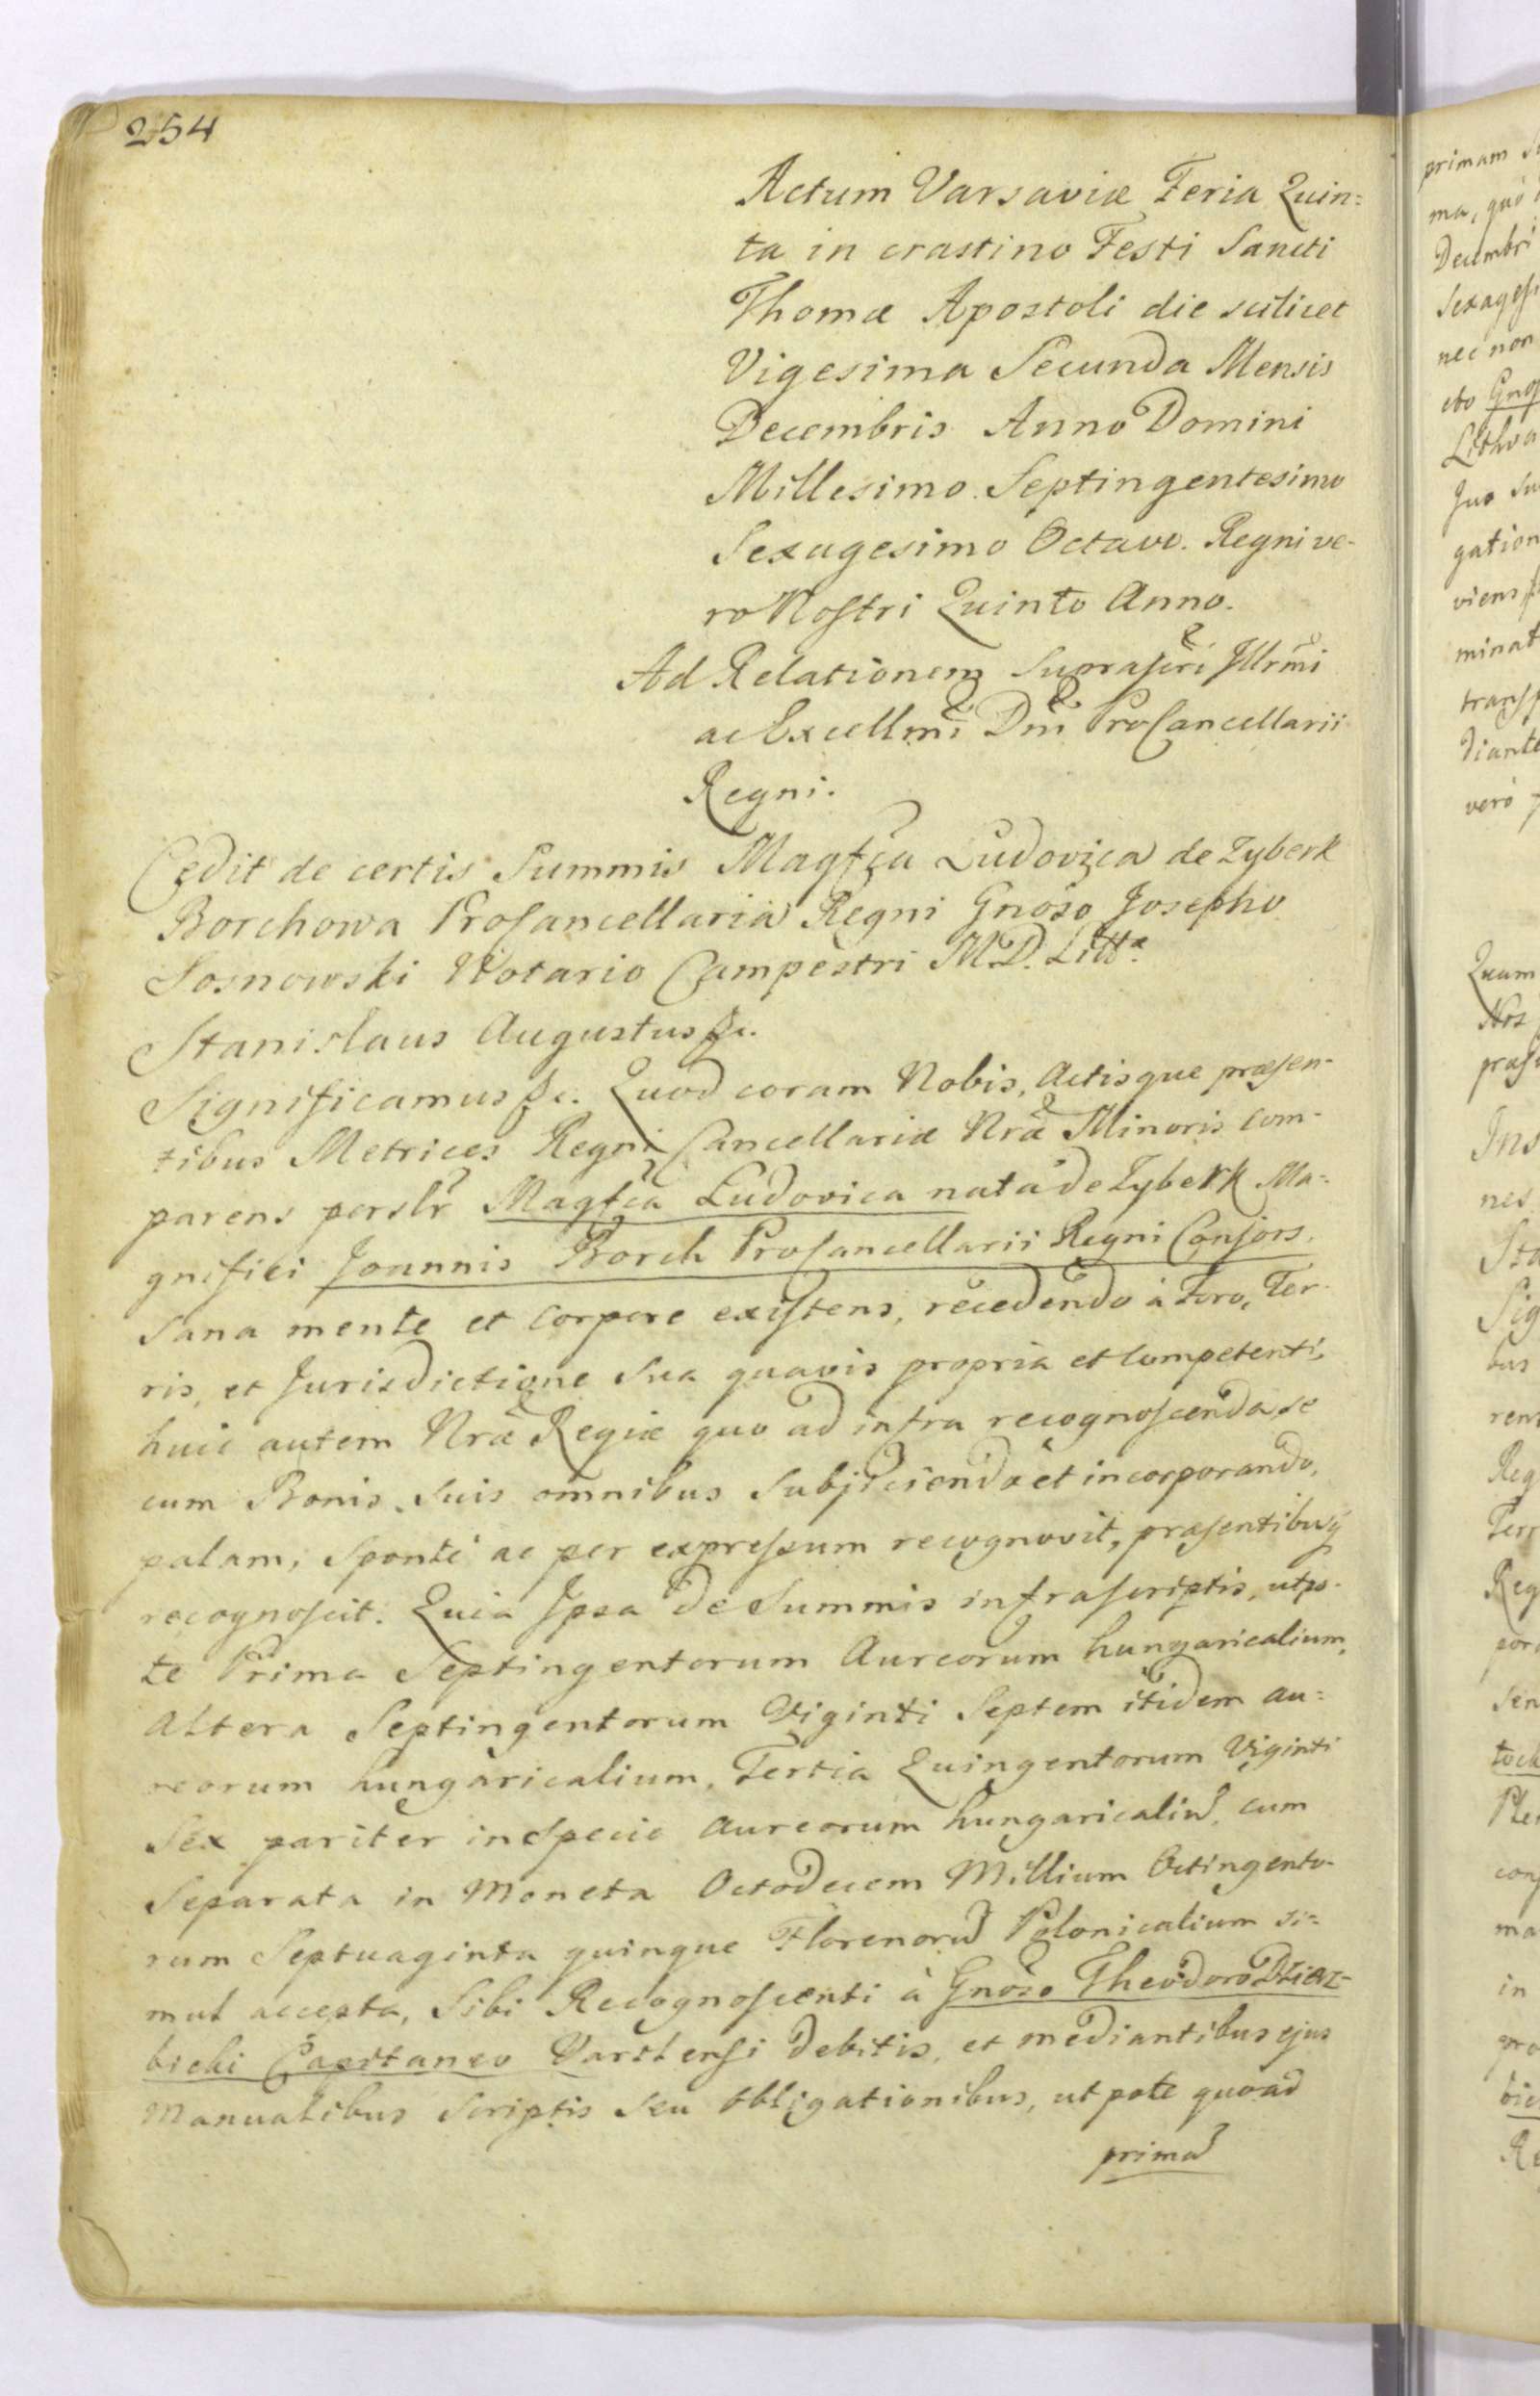 254
Actum Varsaviæ Feria Quin=
ta in crastino Festi Sancti
Thomæ Apostoli die scilicet
Vigesima Secunda Mensis
Decembris Anno Domini
Millesimo Septingentesimo
Sexagesimo Octavo. Regni ve-
ro Nostri Quinto Anno.
Ad Relationem Suprascri Illrmi
ac Excellmi Dni ProCancellarii
Regni.
Cedit de certis Summis Magfca Ludovica de Zyberk
Borchowa ProCancellaria Regni Gnoso Josepho
Sosnowski Notario Campestri M.D. Litt.
Stanislaus Augustus &c.
Significamus &c. Quod coram Nobis, Actisque præsen-
tibus Metrices Regni Cancellariæ Nræ Minoris com-
parens persltr Magfca Ludovica nata de Zyberk Ma=
gnifici Joannis Borch ProCancellarii Regni Consors,
Sana mente et Corpore existens, recedendo à Foro, Ter-
ris, et Jurisdictione Sua quavis propria et Competenti,
huic autem Nræ Regiæ quo ad infra recognoscenda se
cum Bonis Suis omnibus Subjiciendo et incorporando,
palam, Sponte ac per expressum recognovit, præsentibusq
recognoscit. Quia Ipsa de Summis infrascriptis, utpo-
te Prima Septingentorum Aureorum hungaricalium,
Altera Septingentorum Viginti Septem itidem au=
reorum hungaricalium, Tertia Quingentorum Viginti
Sex pariter in Specie Aureorum hungaricaliu, cum
Separata in Moneta Octodecem Millium Octingento-
rum Septuaginta quinque Florenoru Polonicalium si=
mul accepta, Sibi Recognoscenti à Gnoso Theodoro Dzierz-
bicki Capitaneo Vartensi debitis, et mediantibus ejus
Manualibus Scriptis Seu Obligationibus, ut pote quoad
prima
primam
ma, quó
Decembri
Sexages
nec non
cto Gnos
Lithva
gation
viens
minat
transf
diante
veró
Quam
Nos
præs
Ins
nes
Sta
Sig
bus
ren
Reg
Terr
Reg
por
sen
tock
Ple
con
ma
in
pro
bic
Re